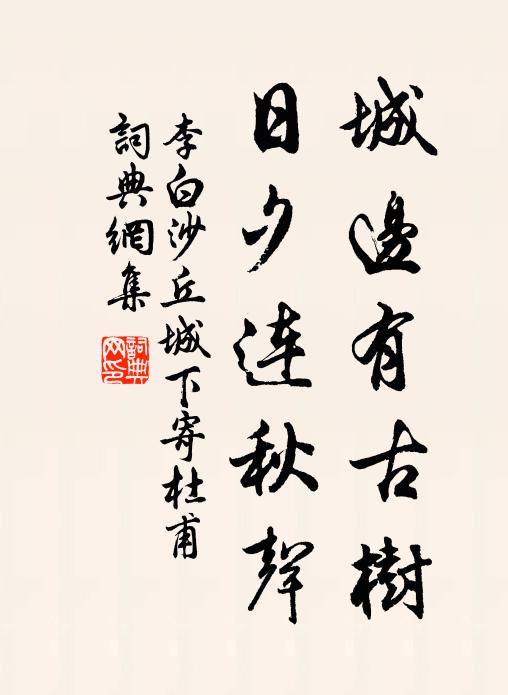 城邊有古樹
日夕連秋聲
李白沙丘城下寄杜甫
詞典網集
詞典网印